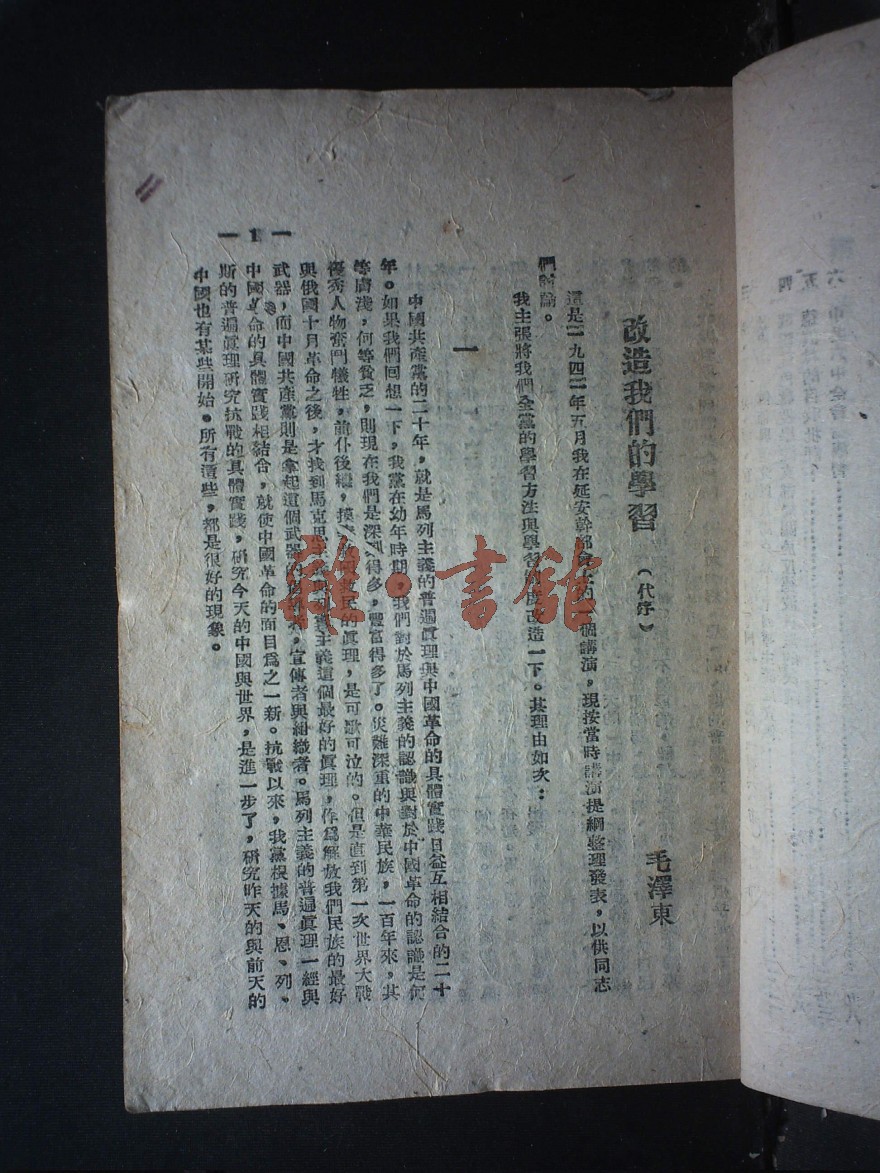 改造我們的學習（代序）
毛澤東
這是一九四一年五月我在延安幹部會上的一個講演，現按當時講演提綱整理發表，以供同志
們討論。
我主張將我們全黨的學習方法與學習制度改造一下。其理由如次：
一
中國共產黨的二十年，就是馬列主義的普遍眞理與中國革命的具體實踐日益互相結合的二十
年。如果我們回想一下，我黨在幼年時期，我們對於馬列主義的認識與對於中國革命的認識是何
等膚淺，何等貧乏，則現在我們是深刻得多，豐富得多了。災難深重的中華民族，一百年來，其
優秀人物奮鬥犧牲，前仆後繼，摸索救國救民的眞理，是可歌可泣的。但是直到第一次世界大戰
與俄國十月革命之後，才找到馬克思主義與列寧主義這個最好的眞理，作爲解放我們民族的最好
武器，而中國共產黨則是拿起這個武器的倡導者，宣傳者與組織者。馬列主義的普遍眞理一經與
中國革命的具體實踐相結合，就使中國革命的面目爲之一新。抗戰以來，我黨根據馬、恩、列、
斯的普遍眞理研究抗戰的具體實踐，研究今天的中國與世界，是進一步了，研究昨天的與前天的
中國也有某些開始。所有這些，都是很好的現象。
— 1 —
雜·書館